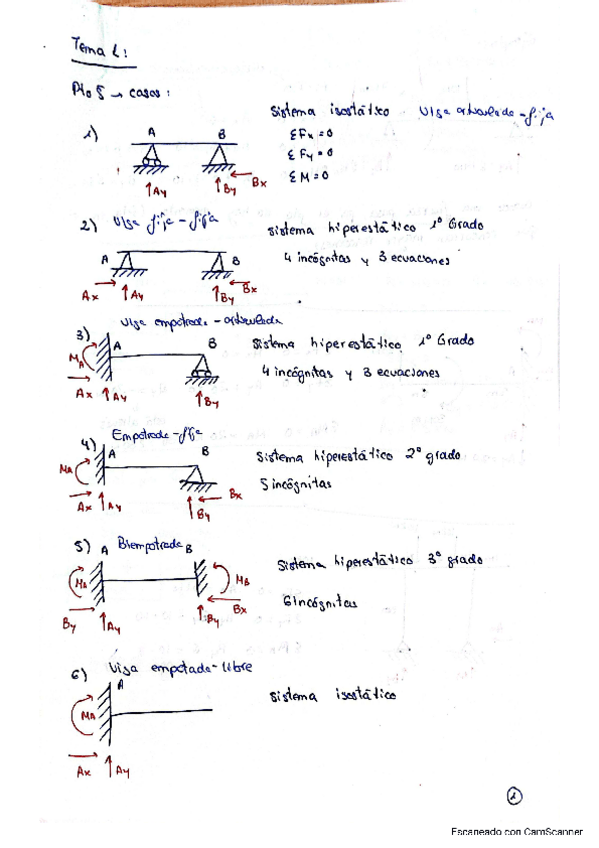 Tema 1:
Pto 5 → casos:
1) A B Sistema isostático Viga articulada-fija
ΣFx=0
ΣFy=0
ΣM=0
Ay By Bx
2) Viga fija-fija Sistema hiperestático 1º Grado
A B 4 incógnitas y 3 ecuaciones
Ax Ay By Bx
Viga empotrada-articulada
3) A B Sistema hiperestático 1º Grado
MA 4 incógnitas y 3 ecuaciones
Ax Ay By
4) Empotrada-fija
A B Sistema hiperestático 2º grado
MA 5 incógnitas
Ax Ay By Bx
5) A Biempotrada B Sistema hiperestático 3º grado
MA MB
6 incógnitas
By Ay By Bx
6) Viga empotada-libre
A Sistema isostático
MA
Ax Ay
1
Escaneado con CamScanner